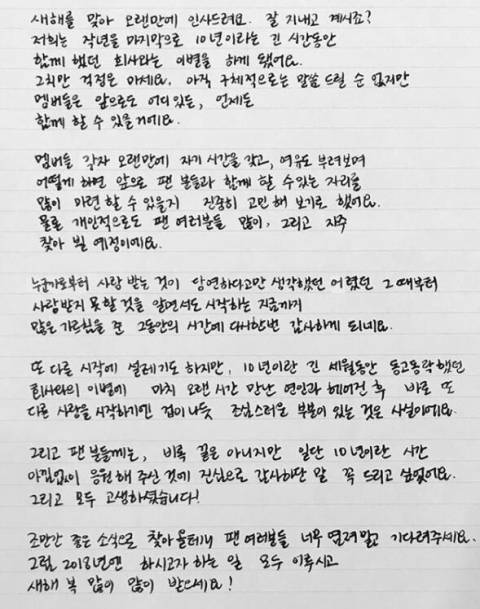 새해를 맞아 오랜만에 인사드려요. 잘 지내고 계시죠?
저희는 작년을 마지막으로 10년이라는 긴 시간동안
함께 했던 회사와는 이별을 하게 됐어요.
그치만 걱정은 마세요. 아직 구체적으로는 말씀 드릴 순 없지만
멤버들은 앞으로도 어디 있든, 언제든
함께 할 수 있을거에요.
멤버들 각자 오랜만에 자기 시간을 갖고, 여유도 부려보며
어떻게 하면 앞으로 팬 분들과 함께 할 수 있는 자리를
많이 마련할 수 있을지 진중히 고민 해 보기로 했어요.
물론 개인적으로도 팬 여러분들 많이, 그리고 자주
찾아 뵐 예정이에요.
누군가로부터 사랑 받는 것이 당연하다고만 생각했던 어렸던 그 때부터
사랑받지 못할 것을 알면서도 시작하는 지금까지
많은 가르침을 준 그동안의 시간에 다시한번 감사하게 되네요.
또 다른 시작에 설레기도 하지만, 10년이란 긴 세월동안 동고동락했던
회사와의 이별에 마치 오랜 시간 만난 연인과 헤어진 후 바로 또
다른 사랑을 시작하기엔 겁이 나듯 조심스러운 부분이 있는 것은 사실이에요.
그리고 팬 분들께는, 비록 끝은 아니지만 일단 10년이란 시간
아낌없이 응원해 주신 것에 진심으로 감사하단 말 꼭 드리고 싶었어요.
그리고 모두 고생하셨습니다!
조만간 좋은 소식으로 찾아올테니 팬 여러분들 너무 염려말고 기다려주세요.
그럼 2018년엔 하시고자 하는 일 모두 이루시고
새해 복 많이 많이 받으세요!